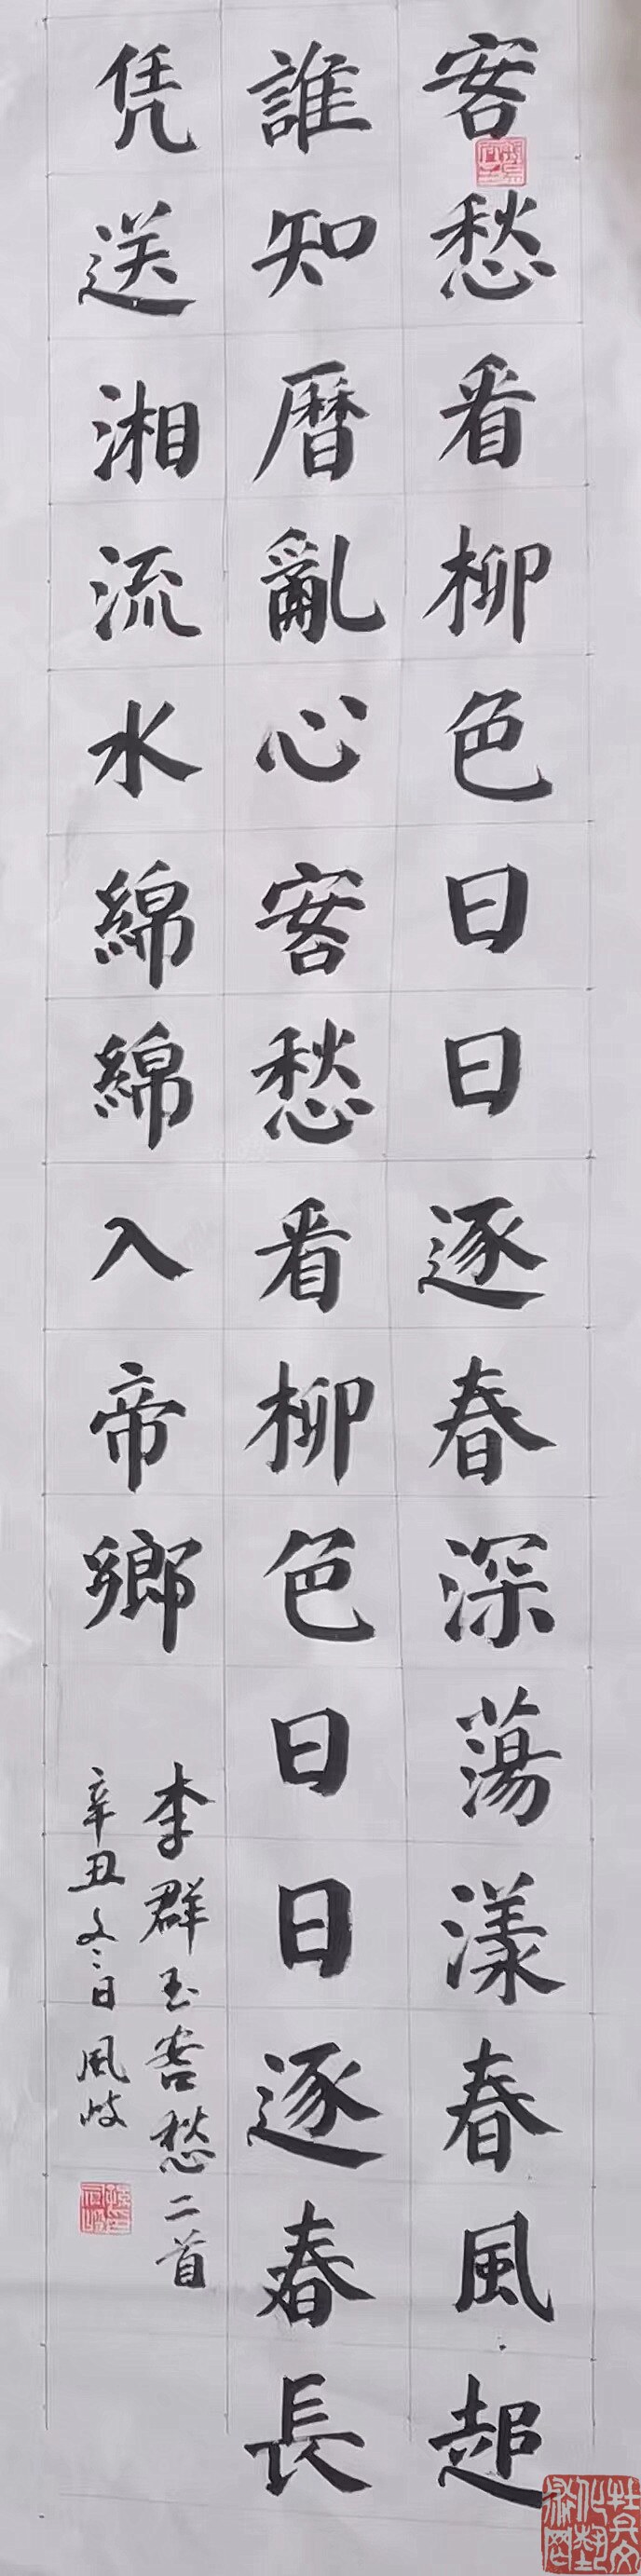 客愁看柳色日日逐春深蕩漾春風起
誰知曆亂心客愁看柳色日日逐春長
凭送湘流水綿綿入帝鄉
李群玉客愁二首
辛丑冬日風岐